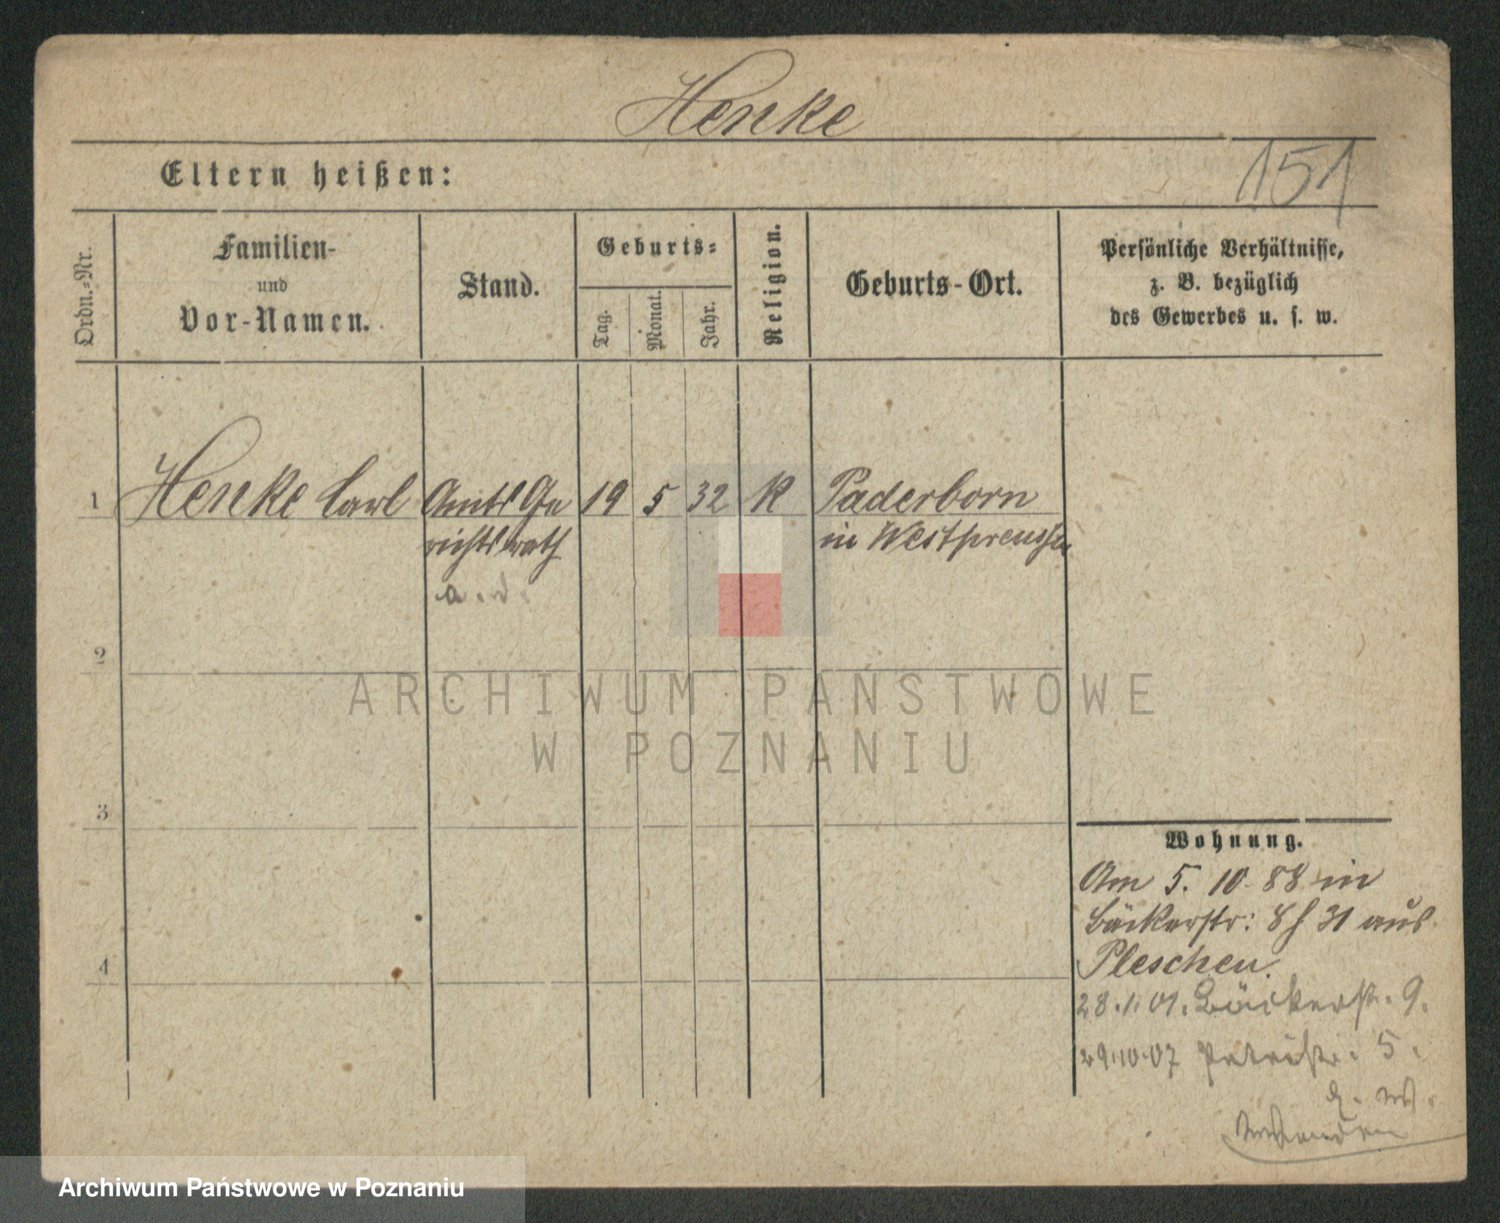 Henke
151
Eltern heißen:
Ordn.-Nr.
Familien-
und
Vor-Namen.
Stand.
Geburts-
Tag.
Monat.
Jahr.
Religion.
Geburts-Ort.
Persönliche Verhältnisse,
z. B. bezüglich
des Gewerbes u. s. w.
1 Henke Carl Amts Ge 19 5 32 K Paderborn
richts rath in Westpreussen
a. d.
2
3
4
ARCHIWUM PAŃSTWOWE
W POZNANIU
Wohnung.
Am 5. 10. 88 in
Bäckerstr: 31 aus
Pleschen.
28.1.01. Bäckerstr. 9.
29.10.07 Petristr. 5.
Archiwum Państwowe w Poznaniu